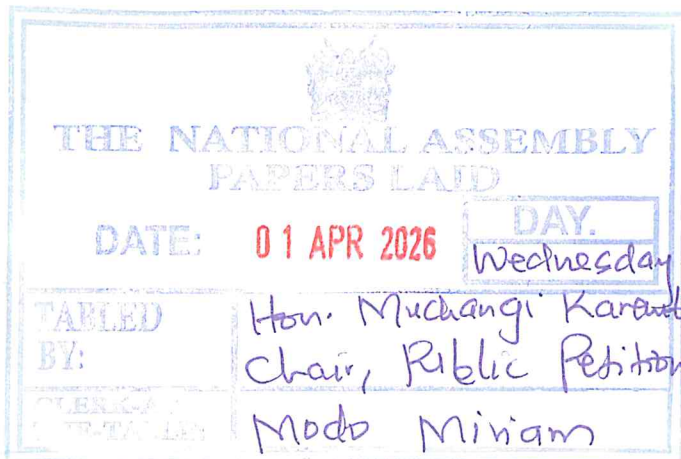 THE NATIONAL ASSEMBLY
PAPERS LAID
DATE: 01 APR 2026
DAY.
Wednesday
TABLED BY:
Hon. Muchangi
Chair, Public Petition
CLERK-AT
THE-TABLE:
Modo Miriam